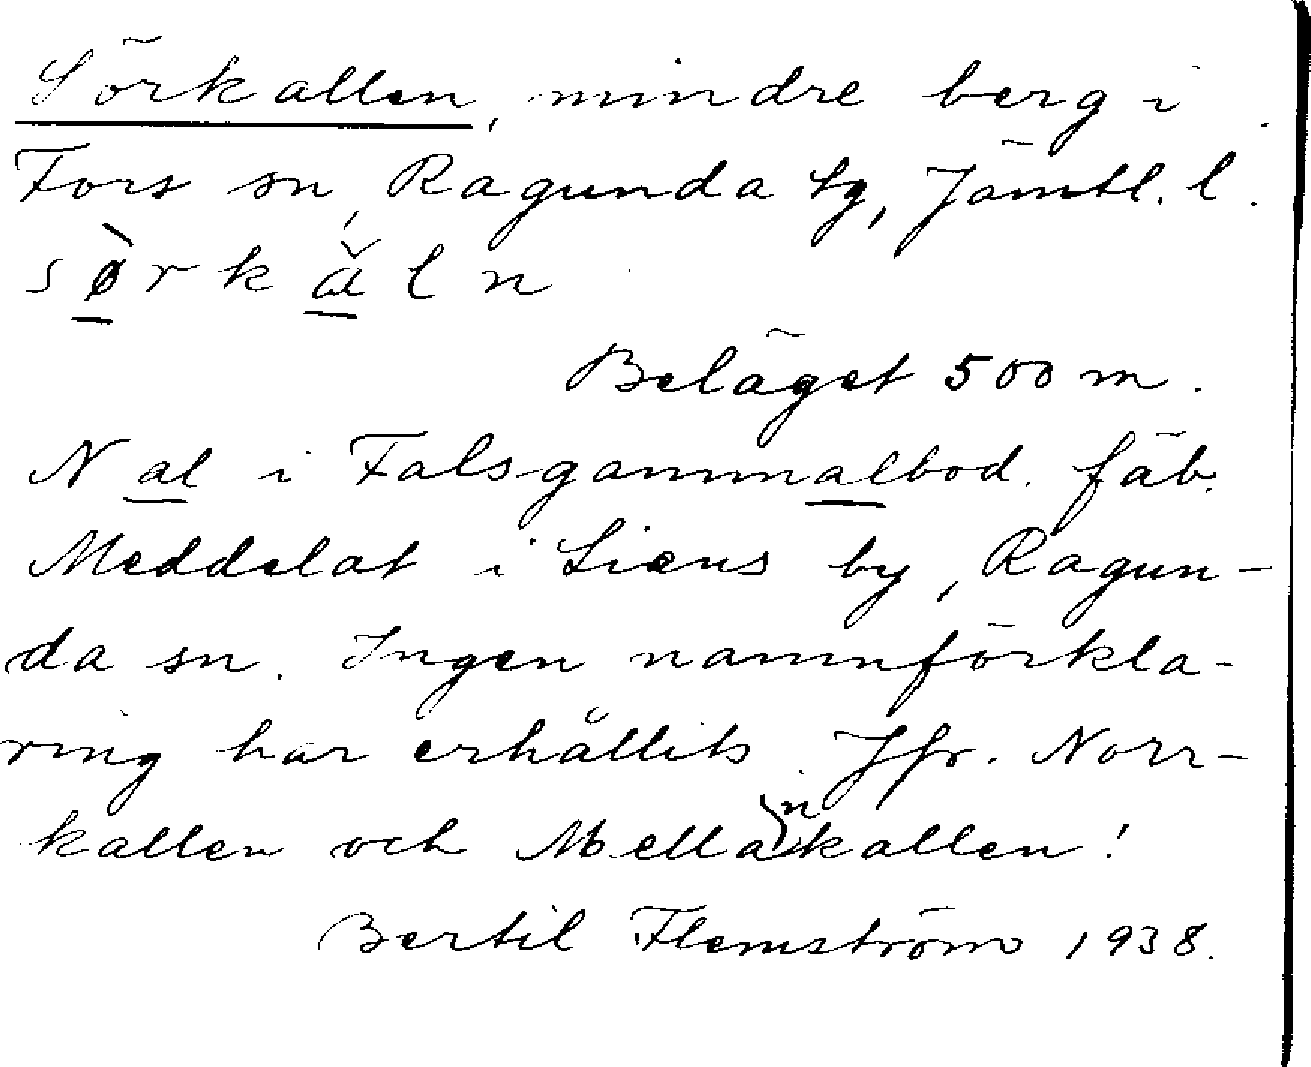 Sörkallen, mindre berg i
Fors sn, Ragunda tg, Jämtl. l.
sø̀rkăln
Beläget 500 m.
N al i Falsgammalbod. fäb.
Meddelat i Liens by, Ragun-
da sn. Ingen namnförkla-
ring har erhållits. Jfr. Norr-
kallen och Mellankallen!
Bertil Flemström 1938.